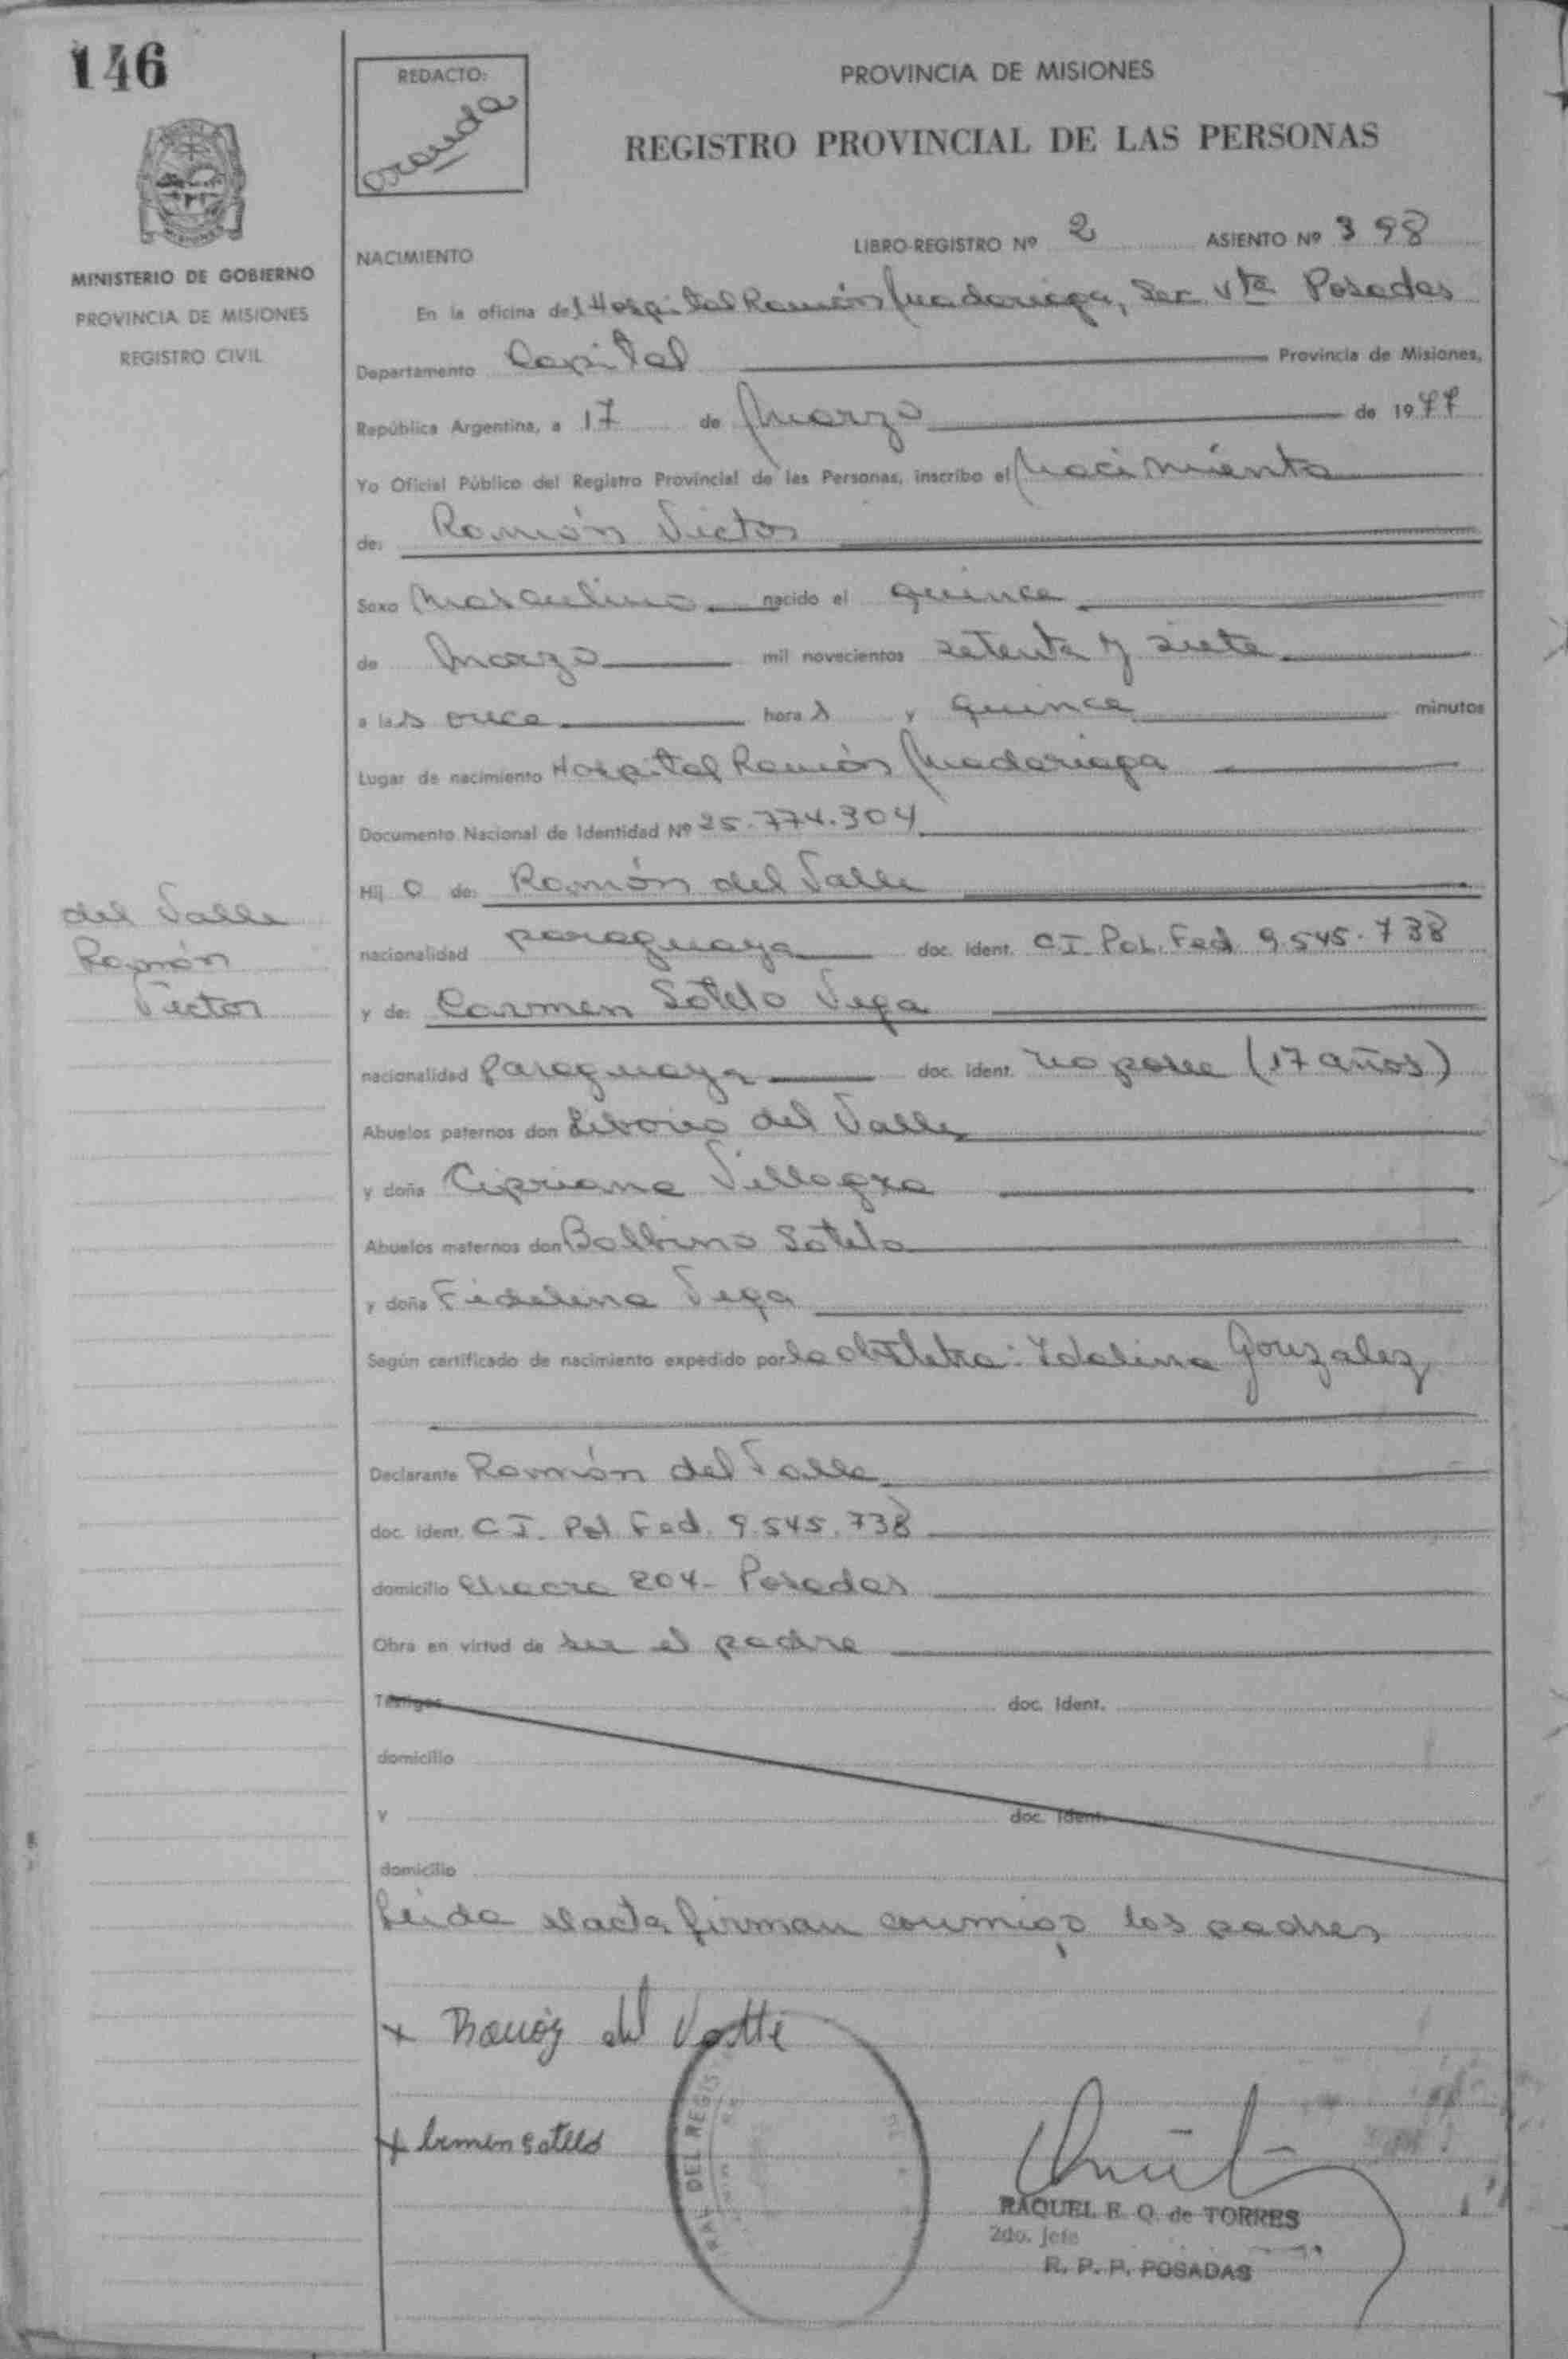 146
REDACTO:
PROVINCIA DE MISIONES
REGISTRO PROVINCIAL DE LAS PERSONAS
MINISTERIO DE GOBIERNO
PROVINCIA DE MISIONES
REGISTRO CIVIL
NACIMIENTO
LIBRO-REGISTRO Nº 2 ASIENTO Nº 398
En la oficina del Hospital Ramón Madariaga, Sec. Vta Posadas
Departamento Capital Provincia de Misiones,
República Argentina, a 17 de Marzo de 1977
Yo Oficial Público del Registro Provincial de las Personas, inscribo el Nacimiento
de: Ramón Victor
Sexo Masculino nacido el quince
de Marzo mil novecientos setenta y siete
a las once horas y quince minutos
Lugar de nacimiento Hospital Ramón Madariaga
Documento Nacional de Identidad Nº 25.774.304
Hijo de: Ramón del Valle
nacionalidad paraguaya doc. ident. C.I. Pol. Fed. 9.545.738
y de: Carmen Sotelo Vega
nacionalidad Paraguaya doc. ident. No posee (17 años)
Abuelos paternos don Liborio del Valle
y doña Cipriana Villagra
Abuelos maternos don Balbino Sotelo
y doña Fidelina Vega
Según certificado de nacimiento expedido por la obstetra: Idalina Gonzalez
Declarante Ramón del Valle
doc. ident. C.I. Pol. Fed. 9.545.738
domicilio Chacra 204- Posadas
Obra en virtud de ser el padre
Testigos doc. Ident.
domicilio
y doc. Ident.
domicilio
Leida el acta, firman conmigo los padres
del Valle
Ramón
Victor
x Ramón del Valle
x Carmen Sotelo
DEL REGIS
RAQUEL E. Q. de TORRES
2do. Jefe
R. P. P. POSADAS